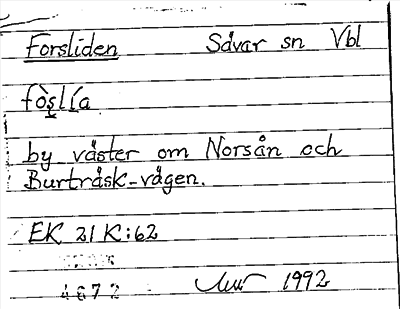 Forsliden Såvar sn Vbl
fòs̱lía
by väster om Norsån och
Burträsk-vägen.
EK 21 K:62
4672 1992